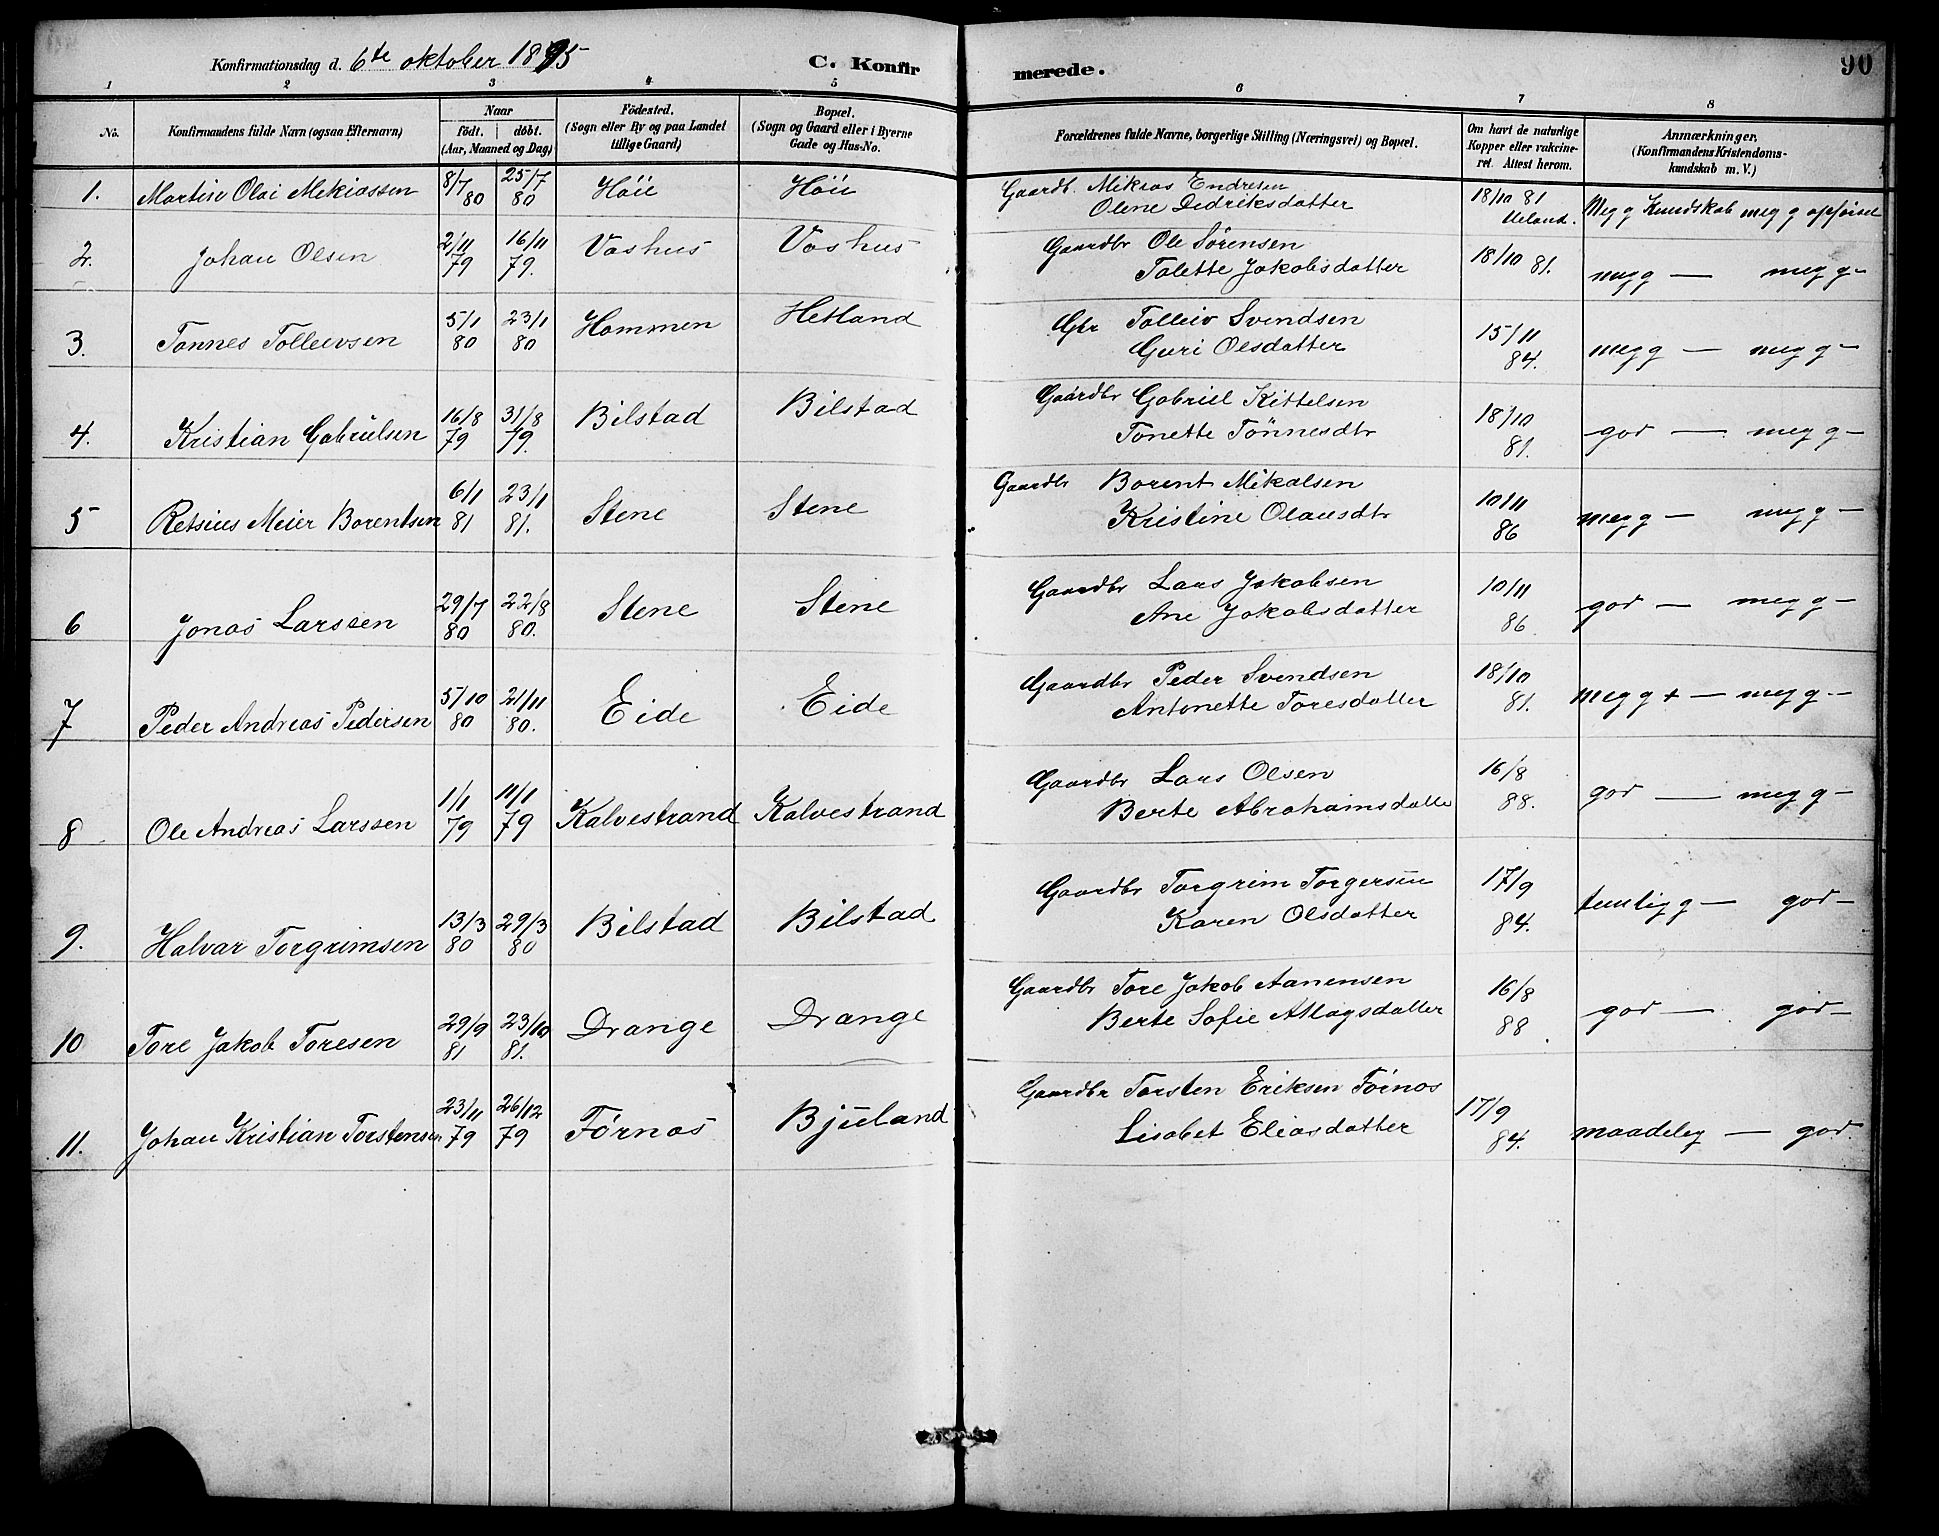 Konfirmationsdag d. 6te oktober 1895 C. Konfir merede. 90
1 2 3 4 5 6 7 8
No. Konfirmandens fulde Navn (ogsaa Efternavn)
Naar
födt. döbt.
(Aar, Maaned og Dag)
Födested.
(Sogn eller By og paa Landet
tillige Gaard)
Bopæl.
(Sogn og Gaard eller i Byerne
Gade og Hus-No.
Forældrenes fulde Navne, borgerlige Stilling (Næringsvei) og Bopæl.
Om havt de naturlige
Kopper eller vakcine-
ret. Attest herom.
Anmærkninger,
(Konfirmandens Kristendoms-
kundskab m. V.)
1. Martin Olai Mekiassen 8/7 80 25/7 80 Höie Höie Gaardb. Mikias Endresen
Olene Didriksdatter 18/10 81 Ueland. Meg g Kundskab meg g opförsel
2. Johan Olsen 2/11 79 16/11 79. Vashus Vashus Gaardbr Ole Sörensen
Talette Jakobsdatter 18/10 81. meg g — meg g —
3. Tönnes Tolleivsen 5/1 80 23/1 80 Hommen Hetland Gbr Tolleiv Svendsen
Guri Olsdatter 15/11 84. meg g — meg g —
4. Kristian Gabrielsen 16/8 79 31/8 79. Bilstad Bilstad Gaardbr Gabriel Kittelsen
Tonette Tönnesdtr 18/10 81. god — meg g —
5 Retsius Meier Borentsen 6/1 81 23/1 81. Stene Stene Gaardbr Borent Mikalsen
Kristine Olausdtr 10/11 86 meg g — meg g —
6 Jonas Larssen 29/7 80 22/8 80. Stene Stene Gaardbr Lars Jakobsen
Ane Jakobsdatter 10/11 86 god — meg g —
7 Peder Andreas Pedersen 5/10 80 21/11 80. Eide Eide Gaardbr Peder Svendsen
Antonette Toresdatter 18/10 81. meg g + — meg g —
8 Ole Andreas Larssen 1/1 79 11/1 79 Kalvestrand Kalvestrand Gaardbr Lars Olsen
Berte Abrahamsdatte 16/8 88. god — meg g —
9. Halvar Torgrimsen 13/3 80 29/3 80 Bilstad Bilstad Gaardbr Torgrim Torgersen
Karen Olsdatter 17/9 84. temlig g — god —
10 Tore Jakob Toresen 29/9 81 23/10 81. Drange Drange Gaardbr Tore Jakob Aanensen
Berte Sofie Atlagsdatter 16/8 88 god — god —
11. Johan Kristian Torstensen 23/11 79 26/12 79 Förnes Bjueland Gaardbr Torsten Eriksen Förnes
Lisabet Eliasdatter 17/9 84. maadeleg — god.